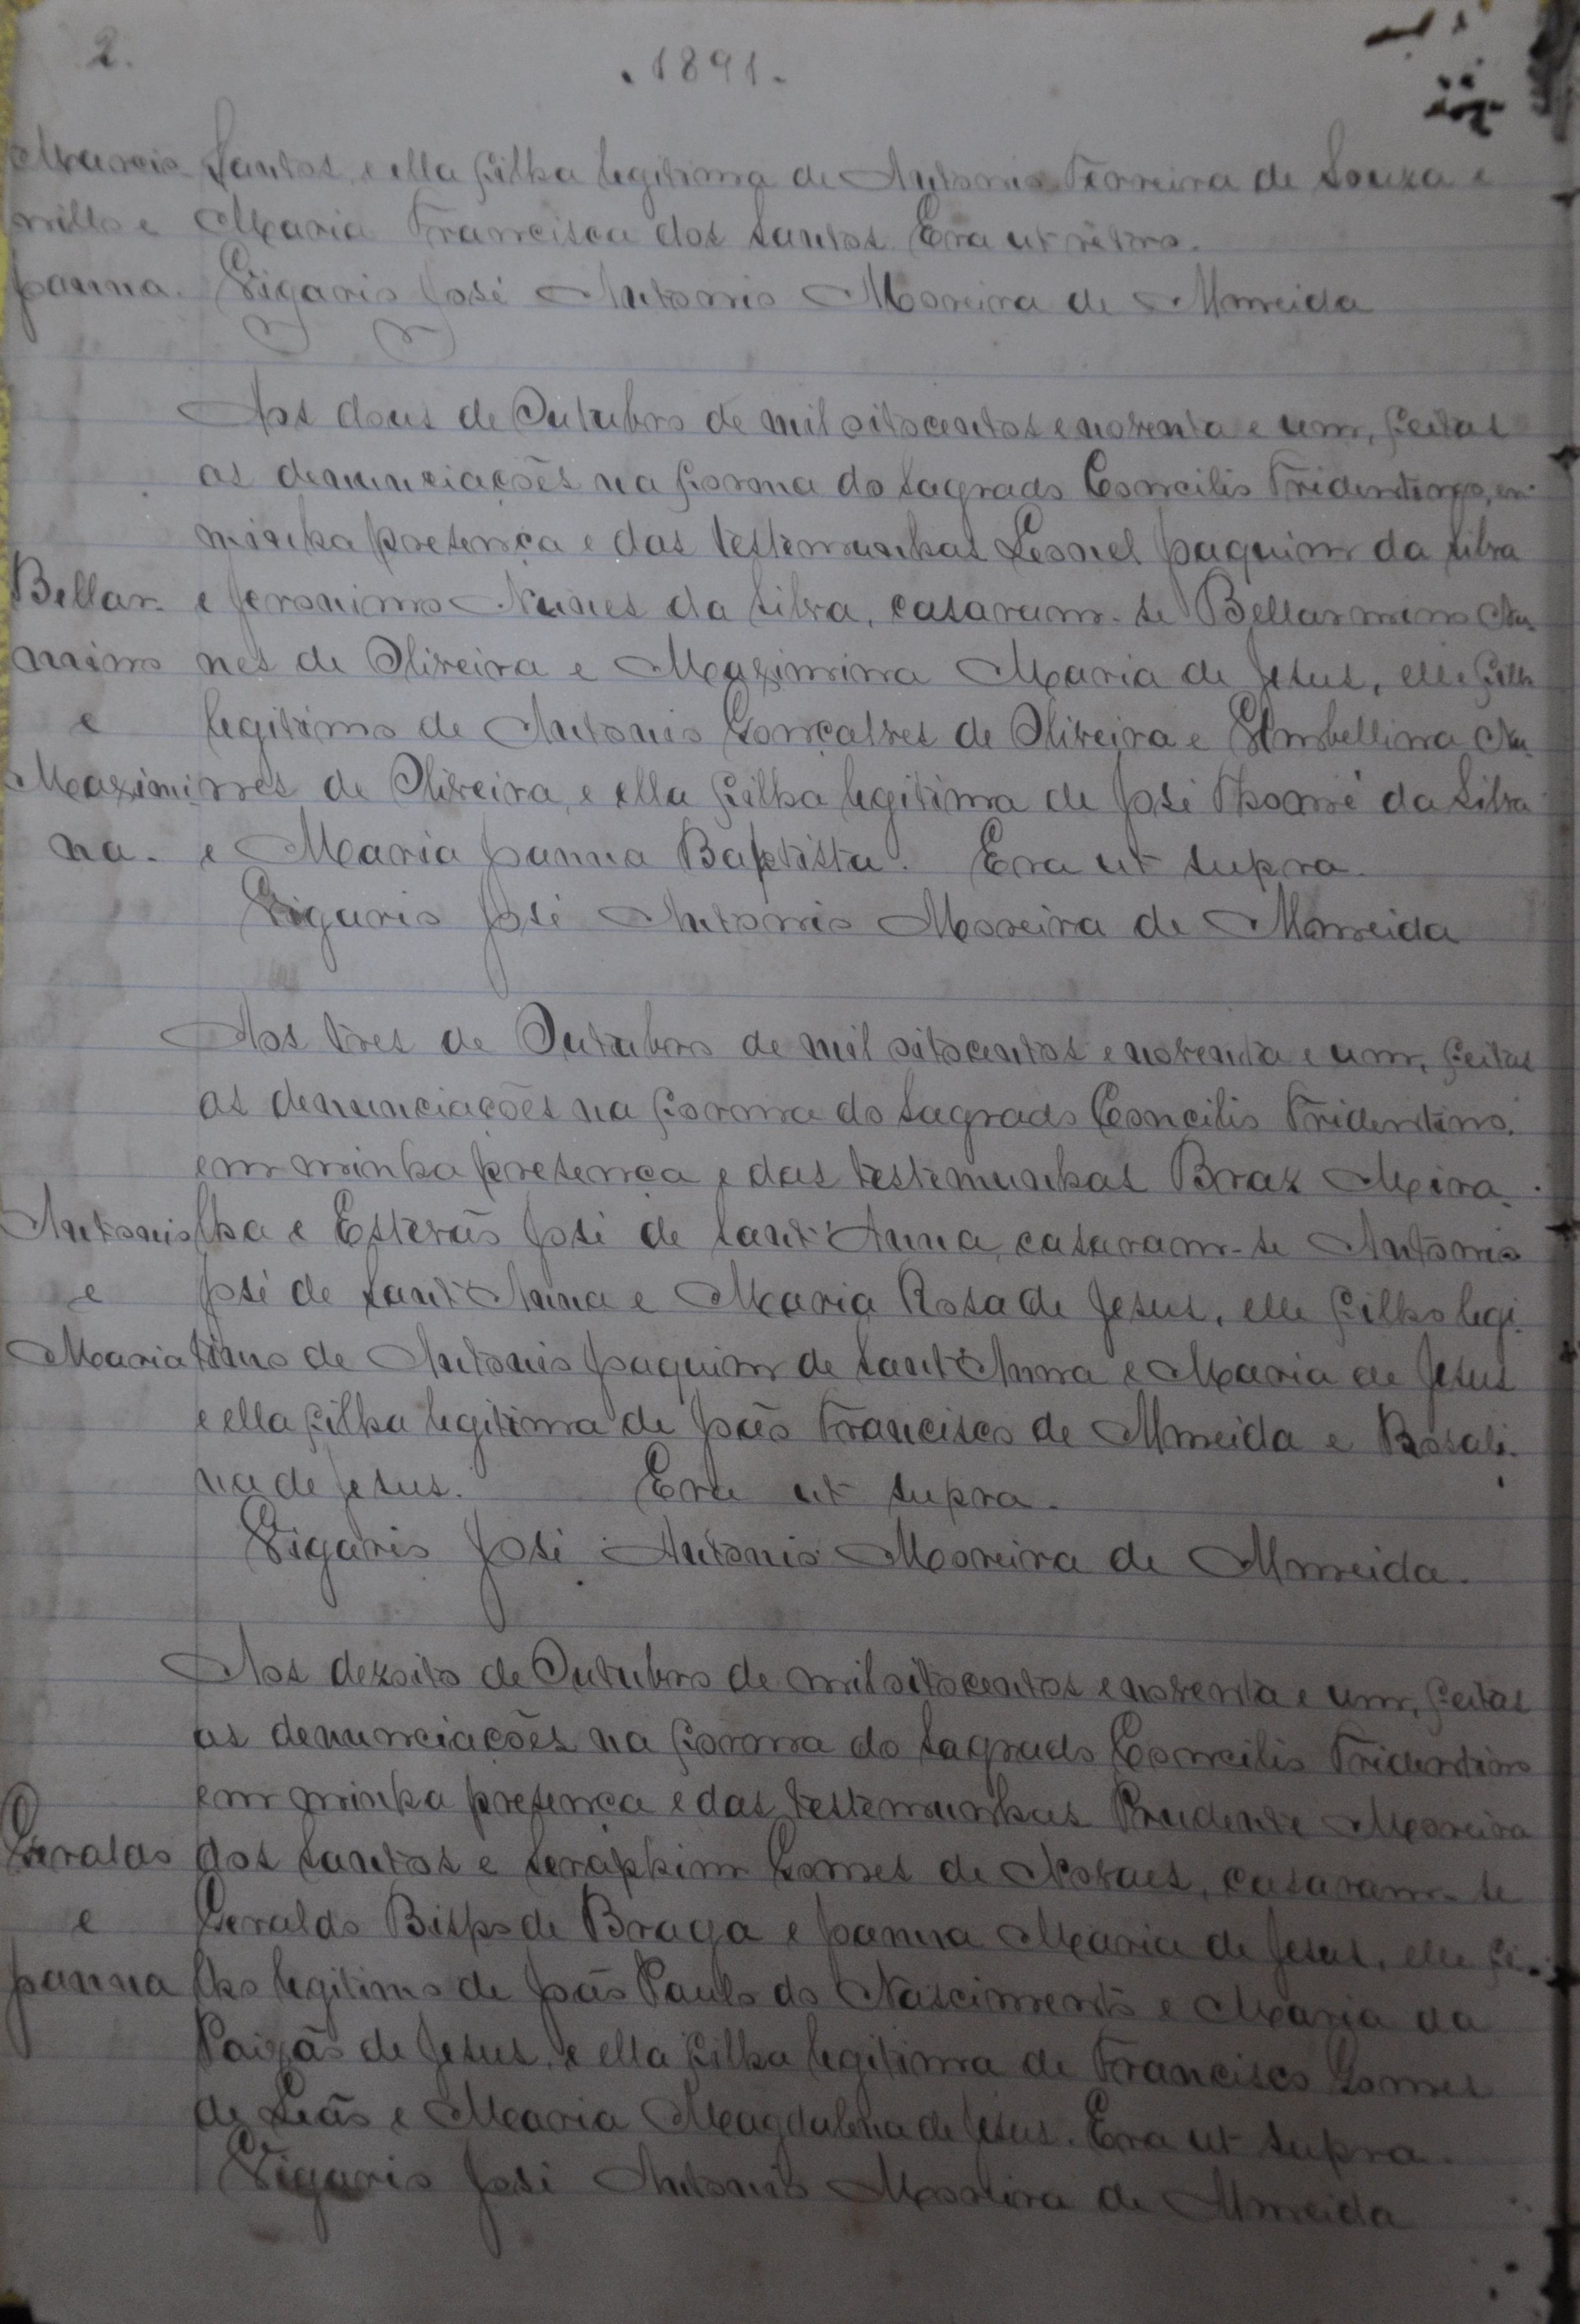 2.
.1891.
Marcio- Santos, e ella filha legitima de Antonio Ferreira de Souza e
nillo e Maria Francisca dos Santos. Era ut retro.
Joanna. Vigario José Antonio Moreira de Almeida
Aos dous de Outubro de mil oitocentos e noventa e um, feitas
as denunciações na forma do Sagrado Concilio Tridentino, em
minha presença e das testemunhas Leonel Joaquim da Silva
Bellar- e Jeronimo Nunes da Silva, casaram-se Bellarmino Nu-
mino nes de Oliveira e Maximina Maria de Jesus, elle filho
e legitimo de Antonio Gonçalves de Oliveira e Umbellina Nu-
Maximi- nes de Oliveira, e ella filha legitima de José Thomé da Silva
na. e Maria Joanna Baptista. Era ut supra.
Vigario José Antonio Moreira de Almeida
Aos tres de Outubro de mil oitocentos e noventa e um, feitas
as denunciações na forma do Sagrado Concilio Tridentino,
em minha presença e das testemunhas Braz Meira
Antonio lha e Estevão José de Sant'Anna, casaram-se Antonio
e José de Sant'Anna e Maria Rosa de Jesus, elle filho legi-
Maria timo de Antonio Joaquim de Sant'Anna e Maria de Jesus
e ella filha legitima de João Francisco de Almeida e Rosali-
na de Jesus. Era ut supra.
Vigario José Antonio Moreira de Almeida.
Aos dezoito de Outubro de mil oitocentos e noventa e um, feitas
as denunciações na forma do Sagrado Concilio Tridentino
em minha presença e das testemunhas Prudente Moreira
Geraldo dos Santos e Seraphim Gomes de Novaes, casaram-se
e Geraldo Bispo de Braga e Joanna Maria de Jesus, elle fi-
Joanna lho legitimo de João Paulo do Nascimento e Maria da
Paixão de Jesus, e ella filha legitima de Francisco Gomes
de Leão e Maria Magdalena de Jesus. Era ut supra.
Vigario José Antonio Moreira de Almeida